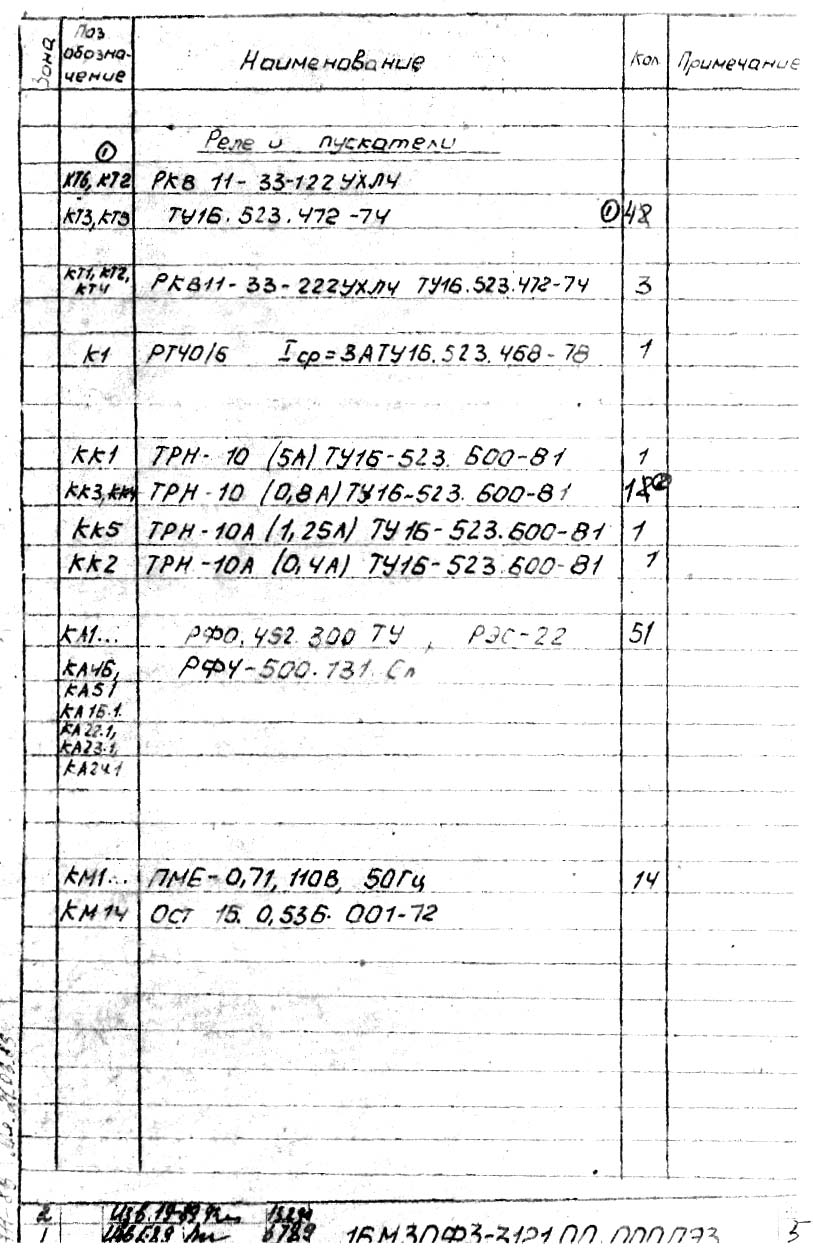 Зона
Поз. обозна-
чение
Наименование
Кол
Примечание
① Реле и пускатели
КТ6, КТ2 РКВ 11-33-122УХЛ4
КТ3, КТ8 ТУ16.523.472-74 ① 48
КТ1, КТ2, РКВ11-33-222УХЛ4 ТУ16.523.472-74 3
КТ4
К1 РТ40/6 Iср=3А ТУ16.523.468-78 1
КК1 ТРН-10 (5А) ТУ16-523.600-81 1
КК3, КК4 ТРН-10 (0,8А) ТУ16-523.600-81
КК5 ТРН-10А (1,25А) ТУ16-523.600-81 1
КК2 ТРН-10А (0,4А) ТУ16-523.600-81 1
КА1... РФ0.452.300 ТУ, РЭС-22 51
КА46, РФ4-500.131 Сп
КА51
КА16.1.
КА22.1,
КА23.1,
КА24.1
КМ1... ПМЕ-0,71, 110В, 50Гц 14
КМ14 ОСТ 16.0,536.001-72
2
1 16М30Ф3-3121.00.000ПЭ3 5